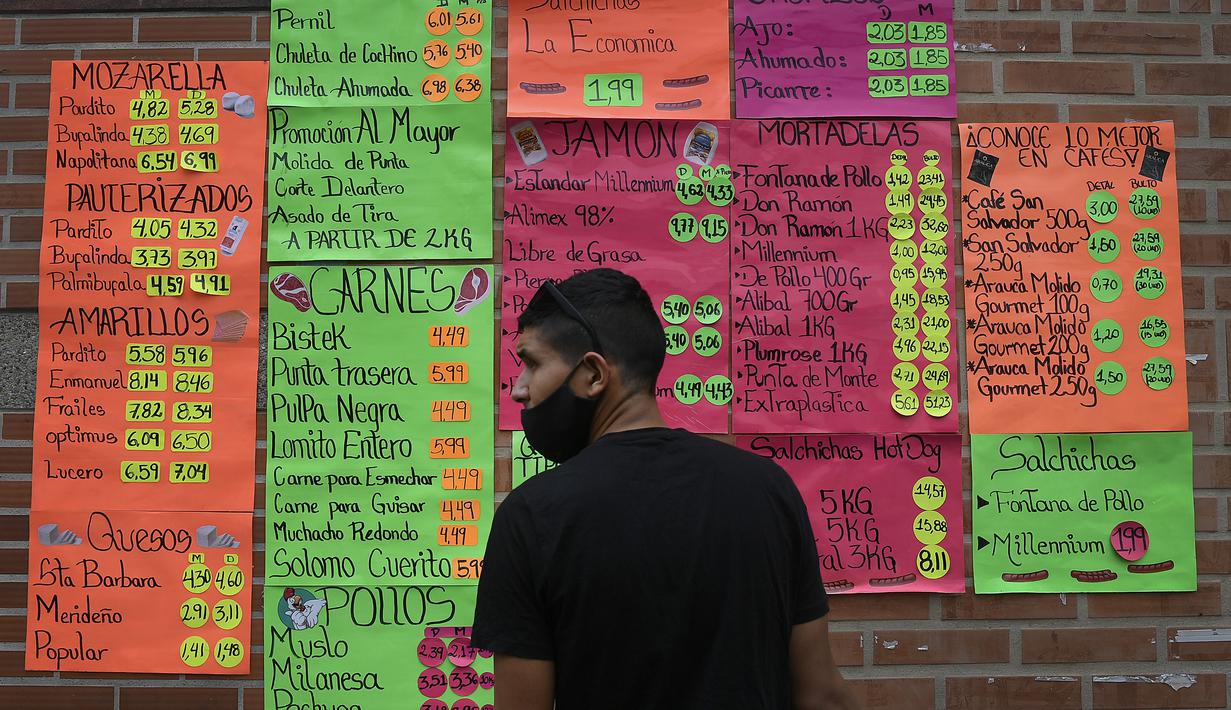 MOZARELLA
M D
Pardito 4,82 5,28
Bufalinda 4,38 4,69
Napolitana 6,54 6,99
PAUTERIZADOS
Pardito 4,05 4,32
Bufalinda 3,73 3,97
Palmibufala 4,59 4,91
AMARILLOS
Pardito 5,58 5,96
Enmanuel 8,14 8,46
Frailes 7,82 8,34
optimus 6,09 6,50
Lucero 6,59 7,04
Quesos
M D
Sta Barbara 4,30 4,60
Merideño 2,91 3,11
Popular 1,41 1,48
D M
Pernil 6,01 5,61
Chuleta de Cochino 5,76 5,40
Chuleta Ahumada 6,98 6,38
Promoción Al Mayor
Molida de Punta
Corte Delantero
Asado de Tira
A PARTIR DE 2KG
CARNES
Bistek 4,49
Punta trasera 5,99
Pulpa Negra 4,49
Lomito Entero 5,99
Carne para Esmechar 4,49
Carne para Guisar 4,49
Muchacho Redondo 4,49
Solomo Cuerito 5,99
POLLOS
D M
Muslo 2,39 2,17
Milanesa 3,51 3,36
Salchichas
La Economica
1,99
JAMÓN
D M
Estandar Millennium 4,62 4,33
Alimex 98% 9,77 9,15
Libre de Grasa
5,40 5,06
5,40 5,06
4,49 4,43
D M
Ajo: 2,03 1,85
Ahumado: 2,03 1,85
Picante: 2,03 1,85
MORTADELAS
DETAL BULTO
Fontana de Pollo 1,42 23,41
Don Ramón 1,49 24,45
Don Ramón 1KG 2,23 32,60
Millennium 1,00 12,00
De Pollo 400Gr 0,95 15,95
Alibal 700Gr 1,45 18,53
Alibal 1KG 2,31 21,00
Plumrose 1KG 4,96 22,15
Punta de Monte 2,71 24,69
Extraplastica 5,61 51,23
Salchichas Hot Dog
5KG 14,57
5KG 15,88
3KG 8,11
¡CONOCE LO MEJOR
EN CAFES!
DETAL BULTO
*Café San
Salvador 500g 3,00 27,59 (10 UND)
*San Salvador
250g 1,50 27,59 (20 UND)
*Arauca Molido
Gourmet 100g 0,70 19,31 (30 UND)
*Arauca Molido
Gourmet 200g 1,20 16,55
*Arauca Molido
Gourmet 250g 1,50 27,59 (20 UND)
Salchichas
Fontana de Pollo
Millennium 1,99